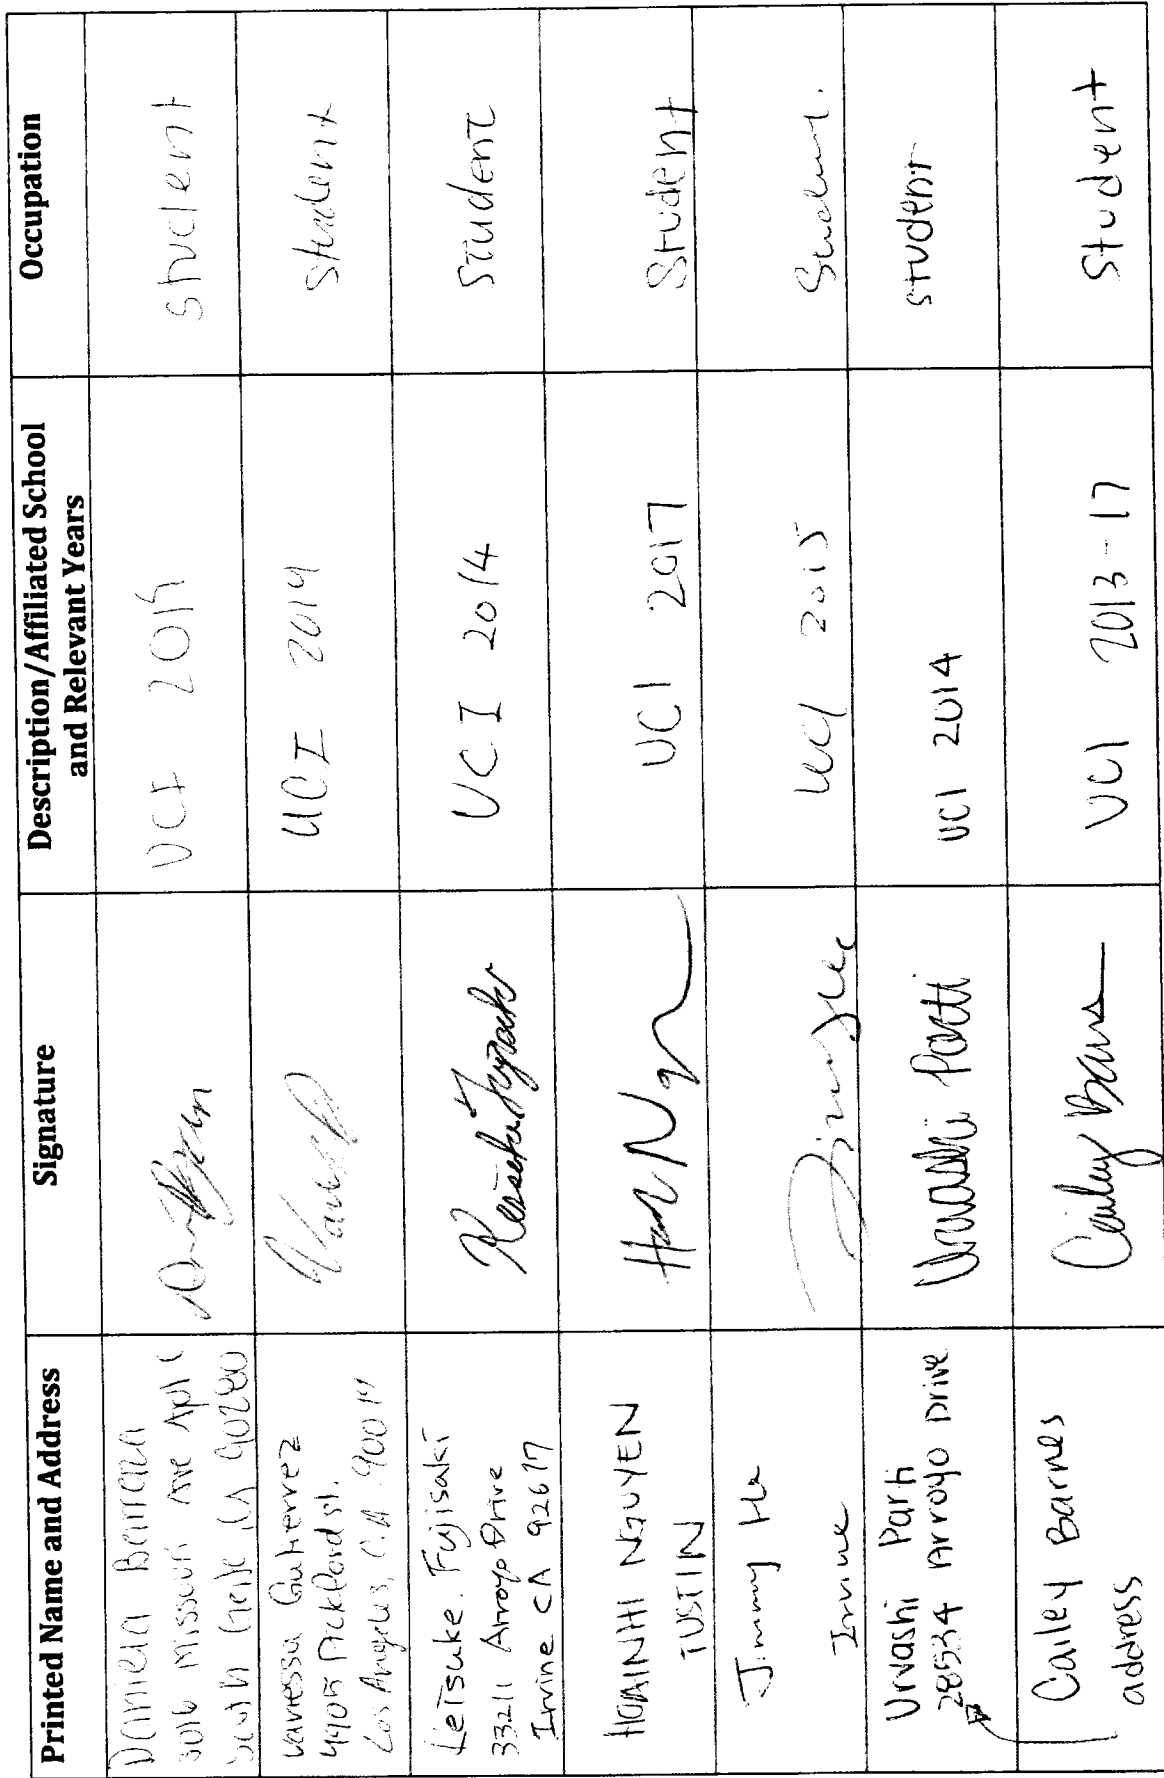 Printed Name and Address
Signature
Description/Affiliated School
and Relevant Years
Occupation
Daniela Barraza
3016 Missouri Ave Apt C
South Gate, CA 90280
UCI
student
Vanessa Gutierrez
4905 Pickford st.
Los Angeles, C.A. 90019
UCI 2014
Student
Keisuke. Fujisaki
33211 Arroyo Drive
Irvine CA 92617
Keisuke Fujisaki
UCI 2014
Student
HOAINHI NGUYEN
TUSTIN
UCI 2017
Student
Jimmy
Irvine
UCI 2015
Student.
Urvashi Parti
28534 Arroyo Drive
Urvashi Parti
UCI 2014
student
Cailey Barnes
address
Cailey Barnes
UCI 2013-17
Student